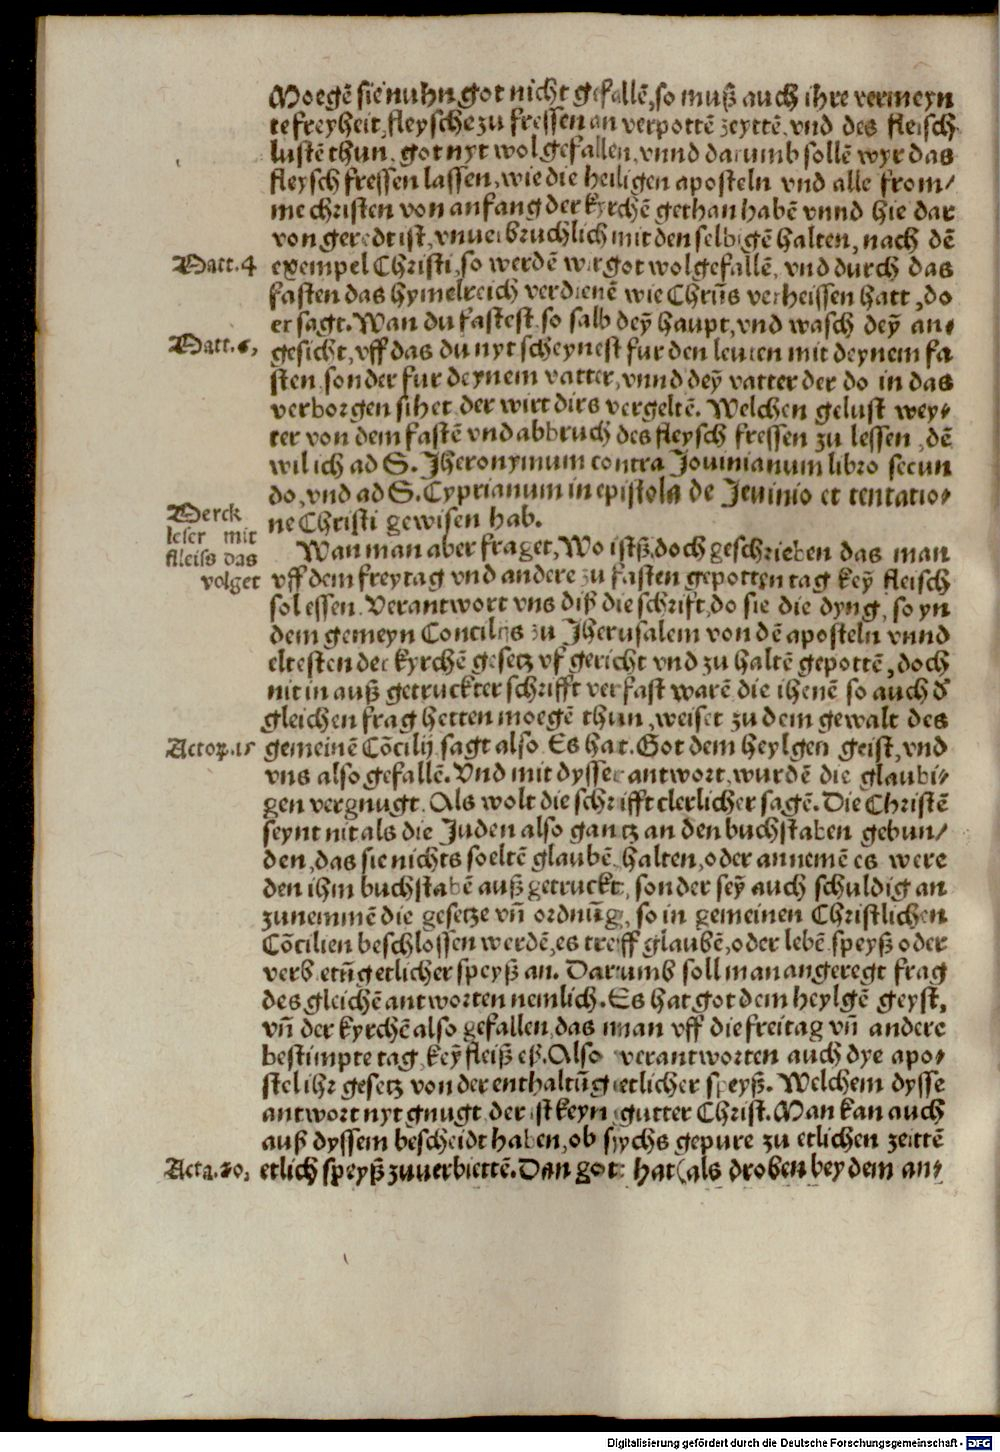 Moegẽ sie nuhn got nicht gefallẽ, so muß auch ihre vermeyn
te freyheit, fleysche zu fressen an verpottẽ zeyttẽ, vnd des fleisch
lustẽ thun, got nyt wol gefallen, vnnd darumb sollẽ wyr das
fleysch fressen lassen, wie die heiligen aposteln vnd alle from/
me christen von anfang der kyrchẽ gethan habẽ vnnd hie dar
von geredt ist, vnuerbruchlich mit den selbigẽ halten, nach dẽ
Matt. 4 exempel Christi, so werdẽ wir got wolgefallẽ, vnd durch das
fasten das hymelreich verdienẽ wie Chrũs verheissen hatt, do
er sagt. Wan du fastest so salb deỹ haupt, vnd wasch deỹ an-
Matt. 6, gesicht, vff das du nyt scheynest fur den leuten mit deynem fa
sten, sonder fur deynem vatter, vnnd deỹ vatter der do in das
verborgen sihet der wirt dirs vergeltẽ. Welchen gelust wey-
ter von dem fastẽ vnd abbruch des fleysch fressen zu lessen, dẽ
wil ich ad S. Jheronymum contra Jouinianum libro secun
do, vnd ad S. Cyprianum in epistola de Jeiunio et tentatio-
ne Christi gewisen hab.
Merck
leser mit
flleiss das
volget
Wan man aber fraget, Wo istß doch geschrieben das man
vff dem freytag vnd andere zu fasten gepotten tag keỹ fleisch
sol essen. Verantwort vns diß die schrift, do sie die dyng, so yn
dem gemeyn Concilijs zu Jherusalem von dẽ aposteln vnnd
eltesten der kyrchẽ gesetz vf gericht vnd zu haltẽ gepottẽ, doch
nit in auß getruckter schrifft verfast warẽ die ihenẽ so auch d͛
gleichen frag hetten moegẽ thun, weiset zu dem gewalt des
Actoꝝ. 15 gemeinẽ Cõcilij sagt also Es hat. Got dem heylgen geist, vnd
vns also gefallẽ. Vnd mit dysser antwort, wurdẽ die glaubi-
gen vergnugt. Als wolt die schrifft clerlicher sagẽ. Die Christẽ
seynt nit als die Juden also gantz an den buchstaben gebun/
den, das sie nichts soeltẽ glaubẽ, halten, oder annemẽ es were
den ihm buchstabẽ auß getruckt, sonder seỹ auch schuldig an
zunemmẽ die gesetze vñ ordnũg, so in gemeinen Christlichen
Cõcilien beschlossen werdẽ, es treff glaubẽ, oder lebẽ speyß oder
verbietũg etlicher speyß an. Darumb soll man angeregt frag
des gleichẽ antworten nemlich. Es hat got dem heylgẽ geyst,
vñ der kyrchẽ also gefallen, das man vff die freitag vñ andere
bestimpte tag, keỹ fleiß eß. Also verantworten auch dye apo-
stel ihr gesetz von der enthaltũg etlicher speyß. Welchem dysse
antwort nyt gnugt, der ist keyn gutter Christ. Man kan auch
auß dyssem bescheidt haben, ob sychs gepure zu etlichen zeittẽ
Acta. 20, etlich speyß zuuerbiettẽ. Dan gott hat (als droben bey dem an-
Digitalisierung gefördert durch die Deutsche Forschungsgemeinschaft - DFG